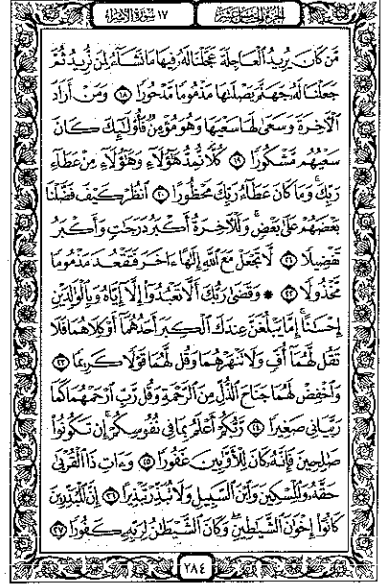 الجزء الخامس عشر
١٧ سورة الإسراء
مَّن كَانَ يُرِيدُ ٱلْعَاجِلَةَ عَجَّلْنَا لَهُۥ فِيهَا مَا نَشَآءُ لِمَن نُّرِيدُ ثُمَّ
جَعَلْنَا لَهُۥ جَهَنَّمَ يَصْلَىٰهَا مَذْمُومًا مَّدْحُورًا ۝١٨ وَمَنْ أَرَادَ
ٱلْأَخِرَةَ وَسَعَىٰ لَهَا سَعْيَهَا وَهُوَ مُؤْمِنٌ فَأُو۟لَـٰٓئِكَ كَانَ
سَعْيُهُم مَّشْكُورًا ۝١٩ كُلًّا نُّمِدُّ هَـٰٓؤُلَآءِ وَهَـٰٓؤُلَآءِ مِنْ عَطَآءِ
رَبِّكَ ۚ وَمَا كَانَ عَطَآءُ رَبِّكَ مَحْظُورًا ۝٢٠ ٱنظُرْ كَيْفَ فَضَّلْنَا
بَعْضَهُمْ عَلَىٰ بَعْضٍ ۚ وَلَلْـَٔاخِرَةُ أَكْبَرُ دَرَجَـٰتٍ وَأَكْبَرُ
تَفْضِيلًا ۝٢١ لَّا تَجْعَلْ مَعَ ٱللَّهِ إِلَـٰهًا ءَاخَرَ فَتَقْعُدَ مَذْمُومًا
مَّخْذُولًا ۝٢٢ ۞ وَقَضَىٰ رَبُّكَ أَلَّا تَعْبُدُوٓا۟ إِلَّآ إِيَّاهُ وَبِٱلْوَٰلِدَيْنِ
إِحْسَـٰنًا ۚ إِمَّا يَبْلُغَنَّ عِندَكَ ٱلْكِبَرَ أَحَدُهُمَآ أَوْ كِلَاهُمَا فَلَا
تَقُل لَّهُمَآ أُفٍّ وَلَا تَنْهَرْهُمَا وَقُل لَّهُمَا قَوْلًا كَرِيمًا ۝٢٣
وَٱخْفِضْ لَهُمَا جَنَاحَ ٱلذُّلِّ مِنَ ٱلرَّحْمَةِ وَقُل رَّبِّ ٱرْحَمْهُمَا كَمَا
رَبَّيَانِى صَغِيرًا ۝٢٤ رَّبُّكُمْ أَعْلَمُ بِمَا فِى نُفُوسِكُمْ ۚ إِن تَكُونُوا۟
صَـٰلِحِينَ فَإِنَّهُۥ كَانَ لِلْأَوَّٰبِينَ غَفُورًا ۝٢٥ وَءَاتِ ذَا ٱلْقُرْبَىٰ
حَقَّهُۥ وَٱلْمِسْكِينَ وَٱبْنَ ٱلسَّبِيلِ وَلَا تُبَذِّرْ تَبْذِيرًا ۝٢٦ إِنَّ ٱلْمُبَذِّرِينَ
كَانُوٓا۟ إِخْوَٰنَ ٱلشَّيَـٰطِينِ ۖ وَكَانَ ٱلشَّيْطَـٰنُ لِرَبِّهِۦ كَفُورًا ۝٢٧
٢٨٤